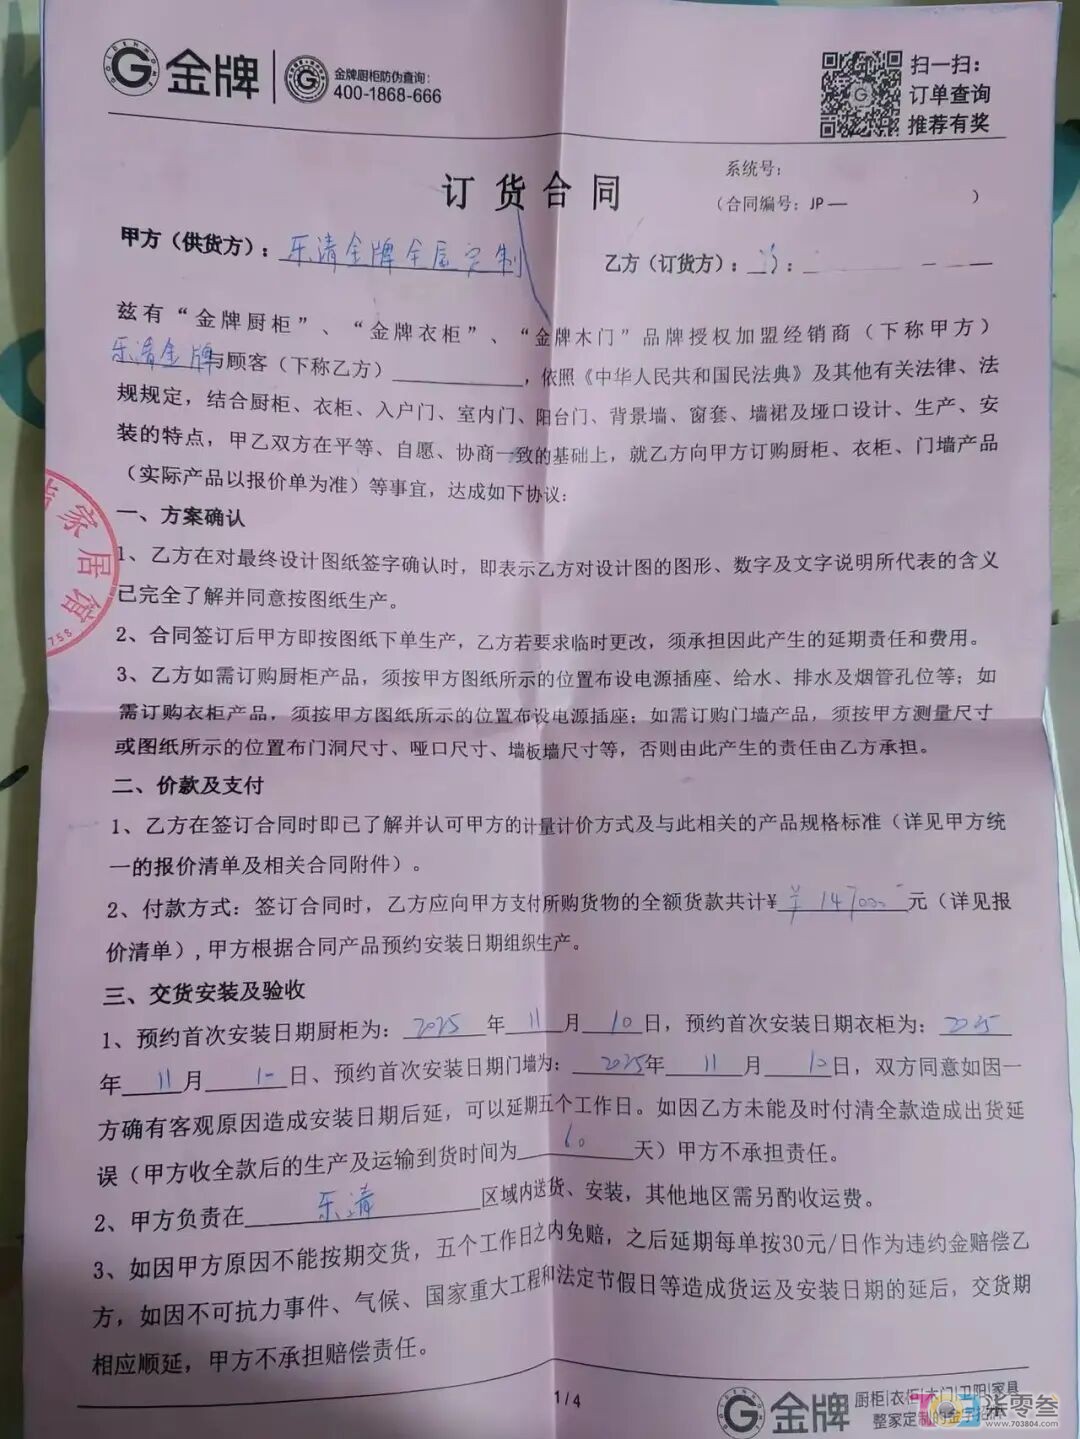 GOLDENHOME
G 金牌
金牌厨柜防伪查询:
400-1868-666
扫一扫:
订单查询
推荐有奖
订货合同
系统号:
(合同编号: JP —                )
甲方(供货方): 乐清金牌全屋定制
乙方(订货方):
兹有“金牌厨柜”、“金牌衣柜”、“金牌木门”品牌授权加盟经销商(下称甲方)
乐清金牌与顾客(下称乙方)__________,依照《中华人民共和国民法典》及其他有关法律、法
规规定,结合厨柜、衣柜、入户门、室内门、阳台门、背景墙、窗套、墙裙及垭口设计、生产、安
装的特点,甲乙双方在平等、自愿、协商一致的基础上,就乙方向甲方订购厨柜、衣柜、门墙产品
(实际产品以报价单为准)等事宜,达成如下协议:
一、方案确认
1、乙方在对最终设计图纸签字确认时,即表示乙方对设计图的图形、数字及文字说明所代表的含义
已完全了解并同意按图纸生产。
2、合同签订后甲方即按图纸下单生产,乙方若要求临时更改,须承担因此产生的延期责任和费用。
3、乙方如需订购厨柜产品,须按甲方图纸所示的位置布设电源插座、给水、排水及烟管孔位等;如
需订购衣柜产品,须按甲方图纸所示的位置布设电源插座;如需订购门墙产品,须按甲方测量尺寸
或图纸所示的位置布门洞尺寸、哑口尺寸、墙板墙尺寸等,否则由此产生的责任由乙方承担。
二、价款及支付
1、乙方在签订合同时即已了解并认可甲方的计量计价方式及与此相关的产品规格标准(详见甲方统
一的报价清单及相关合同附件)。
2、付款方式:签订合同时,乙方应向甲方支付所购货物的全额货款共计¥ ¥147000 元(详见报
价清单),甲方根据合同产品预约安装日期组织生产。
三、交货安装及验收
1、预约首次安装日期厨柜为: 2025 年 11 月 10 日,预约首次安装日期衣柜为: 2025
年 11 月 10 日、预约首次安装日期门墙为: 2025 年 11 月 10 日,双方同意如因一
方确有客观原因造成安装日期后延,可以延期五个工作日。如因乙方未能及时付清全款造成出货延
误(甲方收全款后的生产及运输到货时间为 60 天)甲方不承担责任。
2、甲方负责在 乐清 区域内送货、安装,其他地区需另酌收运费。
3、如因甲方原因不能按期交货,五个工作日之内免赔,之后延期每单按30元/日作为违约金赔偿乙
方,如因不可抗力事件、气候、国家重大工程和法定节假日等造成货运及安装日期的延后,交货期
相应顺延,甲方不承担赔偿责任。
家居馆
758
1/4
G 金牌
厨柜|衣柜|木门|卫阳|家具
整家定制的金字招牌
张零叁
www.703804.com